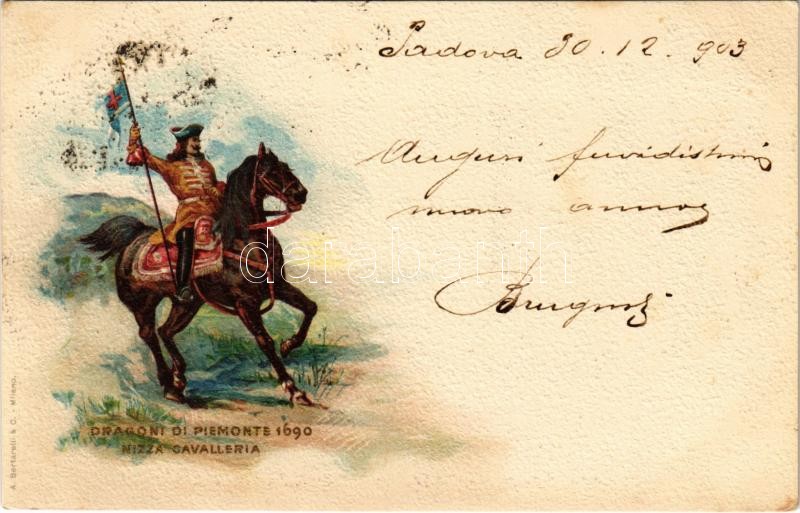 Padova 30.12.903
Auguri fervidissimi
nuovo anno
DRAGONI DI PIEMONTE 1690
NIZZA CAVALLERIA
A. Bertarelli & C. - Milano.
darabanth